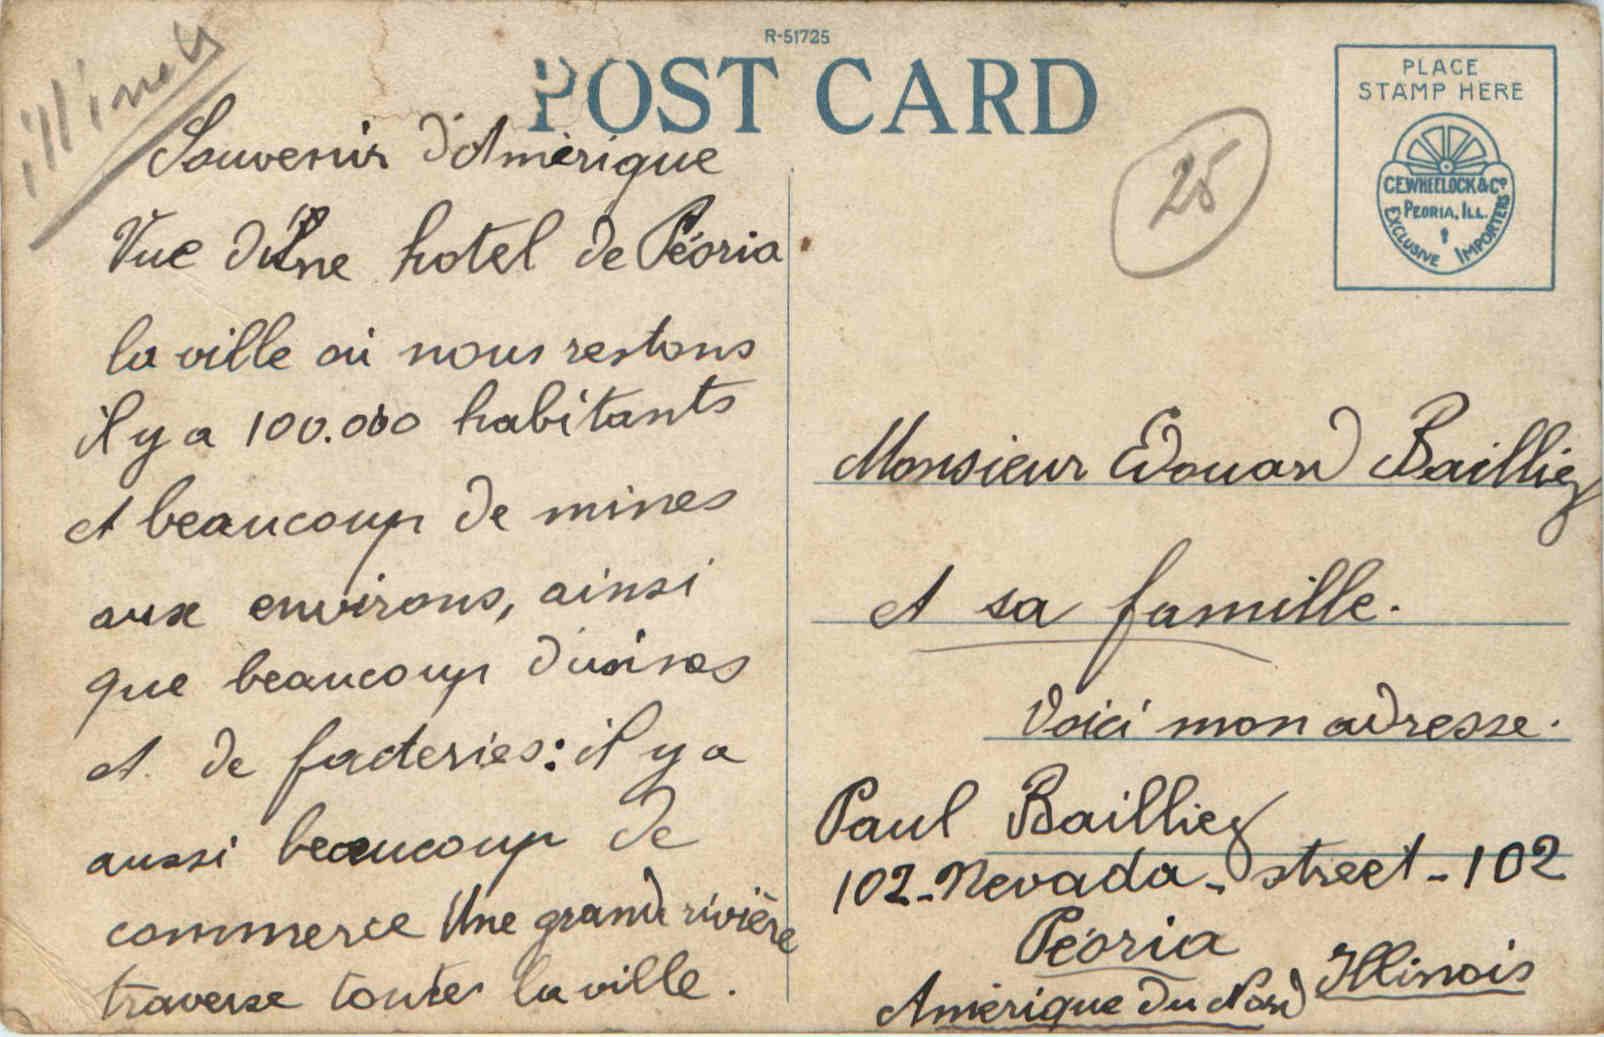 illinois
R-51725
POST CARD
PLACE
STAMP HERE
C.E. WHEELOCK & Co.
PEORIA, ILL.
EXCLUSIVE IMPORTERS
25
Souvenir d'Amérique
Vue d'une hotel de Péoria
la ville où nous restons
il y a 100.000 habitants
et beaucoup de mines
aux environs, ainsi
que beaucoup d'usines
et de facteries: il y a
aussi beaucoup de
commerce Une grande rivière
traverse toute la ville.
Monsieur Edouard Baillieg
et sa famille.
Voici mon adresse.
Paul Baillieg
102 - Nevada - street - 102
Péoria
Illinois
Amérique du Nord